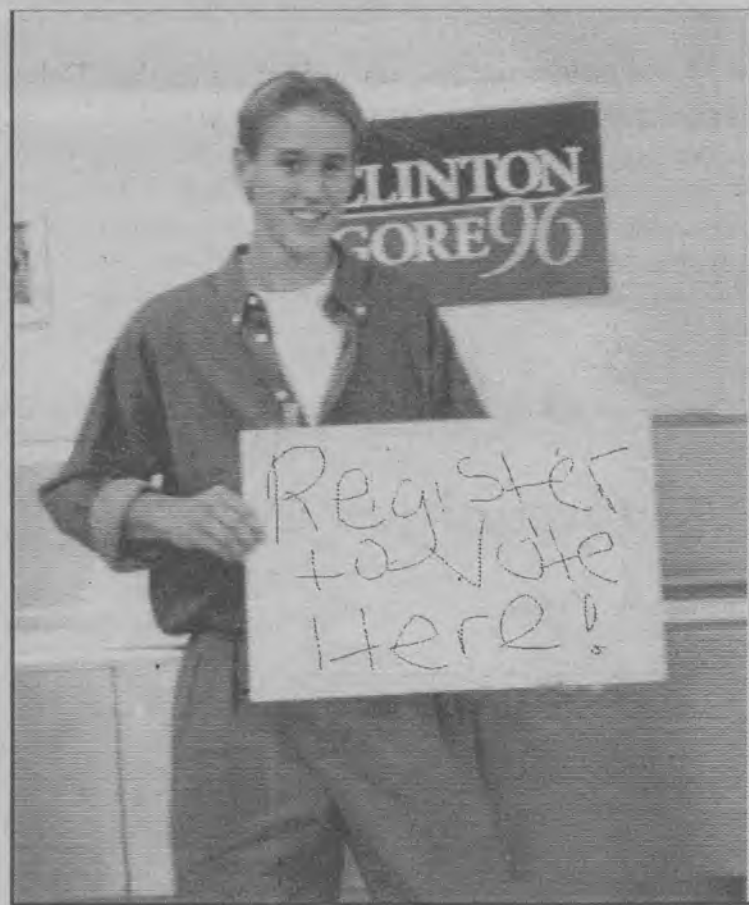 CLINTON
GORE 96
Register
to Vote
Here!